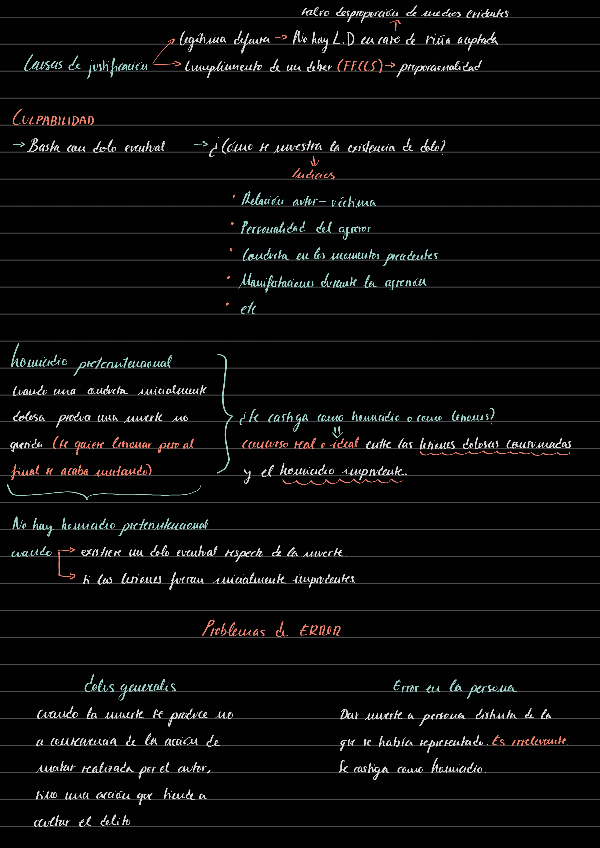 salvo desproporción de medios evidentes
legítima defensa → No hay L.D en caso de riña aceptada
Causas de justificación
Cumplimiento de un deber (FFCCS) → proporcionalidad
CULPABILIDAD
→ Basta con dolo eventual → ¿Cómo se muestra la existencia de dolo?
Indicios
• Relación autor-víctima
• Personalidad del agresor
• Conducta en los momentos precedentes
• Manifestaciones durante la agresión
• etc
homicidio preterintencional
Cuando una conducta inicialmente
dolosa produce una muerte no
querida (se quiere lesionar pero al
final se acaba matando)
¿Se castiga como homicidio o como lesiones?
concurso real o ideal entre las lesiones dolosas consumadas
y el homicidio imprudente.
No hay homicidio preterintencional
cuando → existiese un dolo eventual respecto de la muerte
→ si las lesiones fueran inicialmente imprudentes
Problemas de ERROR
dolus generalis
cuando la muerte se produce no
a consecuencia de la acción de
matar realizada por el autor,
sino una acción que tiende a
ocultar el delito
Error en la persona
Dar muerte a persona distinta de la
que se había representado. Es irrelevante.
Se castiga como homicidio